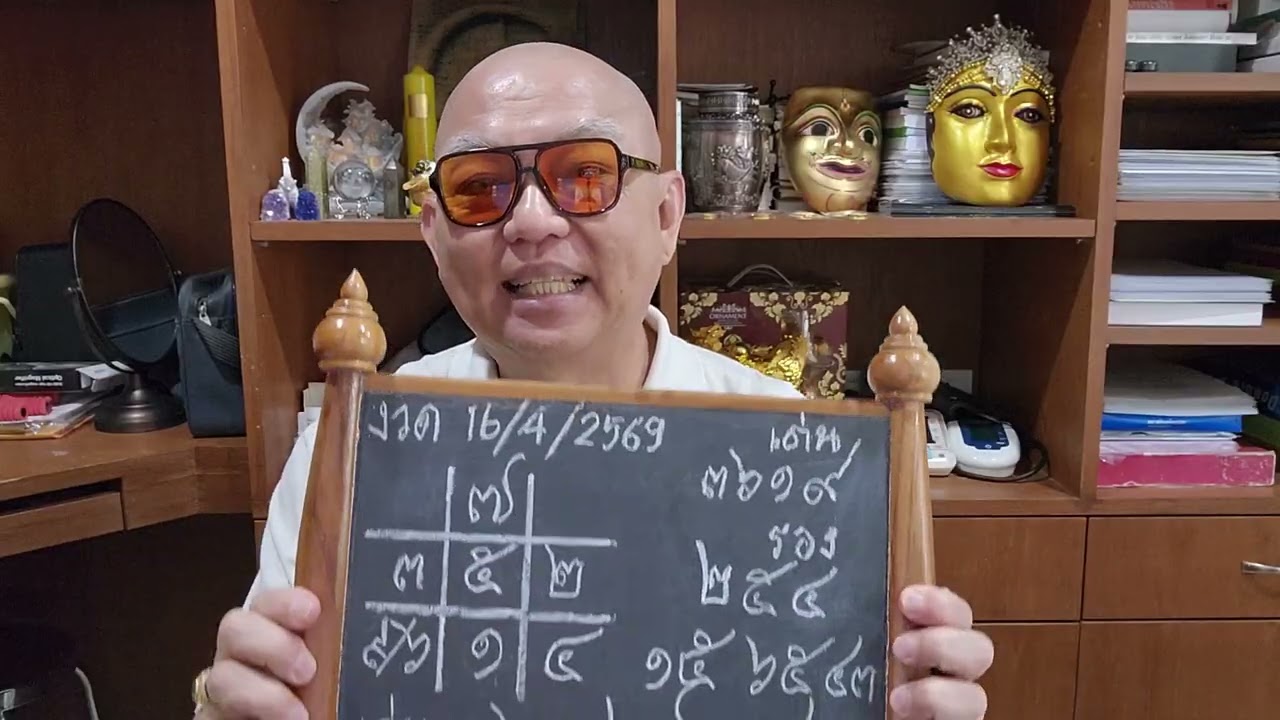 งวด 16/4/2569
เด่น
๗
๓๖๑๙
๓ ๕ ๒
รอง
๒๕๔
๑ ๔
๑๕ ๖๕๔๓
ORNAMENT
Optical Magnifier